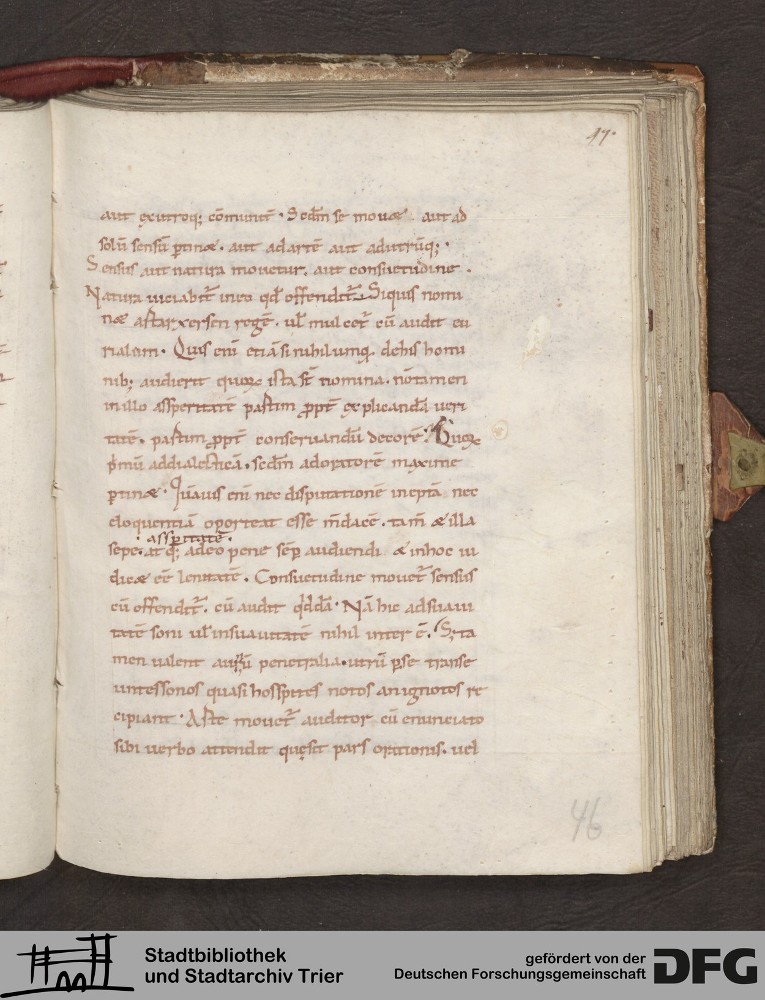 47.
aut ex utroq; cōmunit̄ · Sedm̄ se mouet aut ad
solū sensū ꝑtinet · aut ad artē aut ad utrūq; ·
Sensus aut natura mouetur. aut consuetudine ·
Natura uiciabit̄ in eo qd̄ offendit̄. Si quis nomi
net aſtarxersen regē · ul̄ mulcet̄ cū audit eu
rialum · Quis enī etiā si nihil umq̨ de his homi
nib; audierit quoꝝ ista st̄ nomina. nō tamen
in illo assperitatē
tatē. conseruandū decorē · Quoꝝ
p̄mū ad dialecticā. sedm̄ ad oratorē maxime
ꝑtinet · Quāuis enī nec disputationē ineptā nec
eloquentiā oporteat esse m̄dacē. tam̄ et illa
· assꝑitatē ·
sepe. atq; adeo pene sēꝑ audiendi et in hoc iu
dicet eē lenitatē. Consuetudine mouet̄ sensus
cū offendit̄. cū audit qd̄dā · Nā hic ad suaui
tatē soni ul̄ insuauitatē nihil inter ē. Sȝ ta
men ualent auriū penetralia. utrū ꝑ se transe
untes sonos quasi hosspites notos an ignotos re
cipiant · Aſte mouet̄ auditor cū enunciato
sibi uerbo attendit quę sit pars orationis. uel
46
Stadtbibliothek
und Stadtarchiv Trier
gefördert von der
Deutschen Forschungsgemeinschaft
DFG